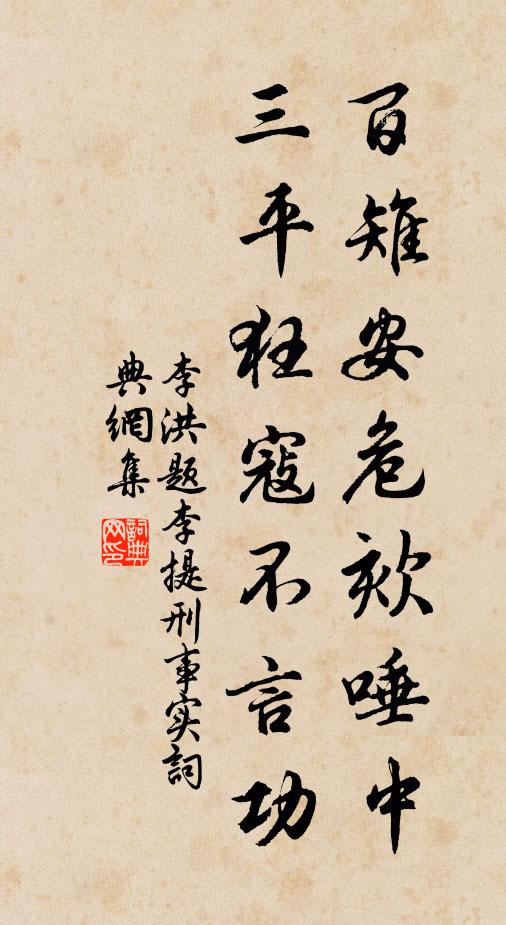 百雉安危欬唾中
三平狂寇不言功
李洪题李提刑事实词
典網集
詞典
网印